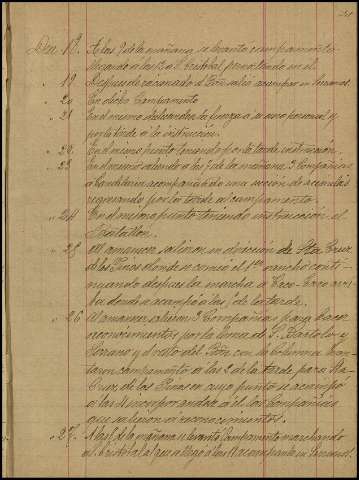 Dbre 18. A las 7 de la mañana se levantó campamento
llegando a las 12 a S. Cristóbal pernoctando en él.
" 19. Después de racionado el Bón. salió acampar en Serranos.
" 20 En dicho Campamento
" 21 En el mismo dedicandose la fuerza a su aseo personal y
por la tarde a la instrucción.
" 22. En el mismo punto teniendo por la tarde instrucción.
" 23 En el mismo saliendo a las 7 de la mañana 3 Compañias
a Candelaria acompañando una sección de acemilas
regresando por la tarde al campamento.
" 24 En el mismo punto teniendo instrucción el
Batallón.
" 25 Al amanecer salieron en dirección de Sta. Cruz
de los Pinos donde se comió el 1er. rancho conti-
nuando despues la marcha a
donde acampó a las 5 de la tarde.
" 26 Al amanecer salieron 3 Compañias para hacer
reconocimientos por la loma de S. Bartolo y
Serrano y el resto del Bón. con la columna levan-
taron campamento a las 2 de la tarde para Sta.
Cruz de los Pinos en cuyo punto se acampó
a las 4 incorporandose a él las Compañias
que salieron a reconocimientos.
" 27. A las 6 de la mañana se levantó Campamento marchando
a S. Cristóbal al que se llegó a las 11 acampando en Serranos.